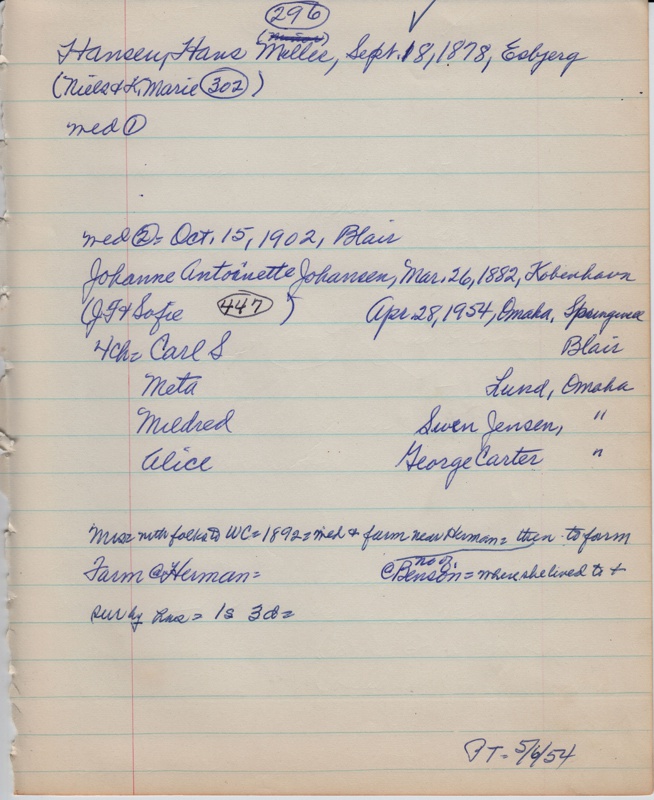 296
Hansen, Hans Møller, Sept. 18, 1878, Esbjerg
(Niels & K. Marie 302)
med ①
med ② = Oct. 15, 1902, Blair
Johanne Antoinette Johansen, Mar. 26, 1882, Kobenhavn
(J.F & Sofie 447) Apr 28, 1954, Omaha,
4ch = Carl S Blair
Meta Lund, Omaha
Mildred Swen Jensen, "
Alice George Carter "
Mrs = with folks to WC = 1892 = med & farm near Herman = then to farm
no of
Farm @ Herman = @ Benson = where she lived to +
sur by hus = 1s 3d =
PT = 5/6/54